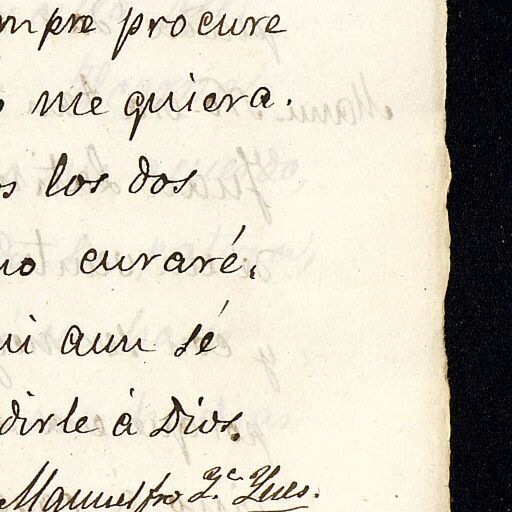 mpre procure
me quiera.
s los dos
no curaré.
ui aun sé
dirle à Dios.
Manuel